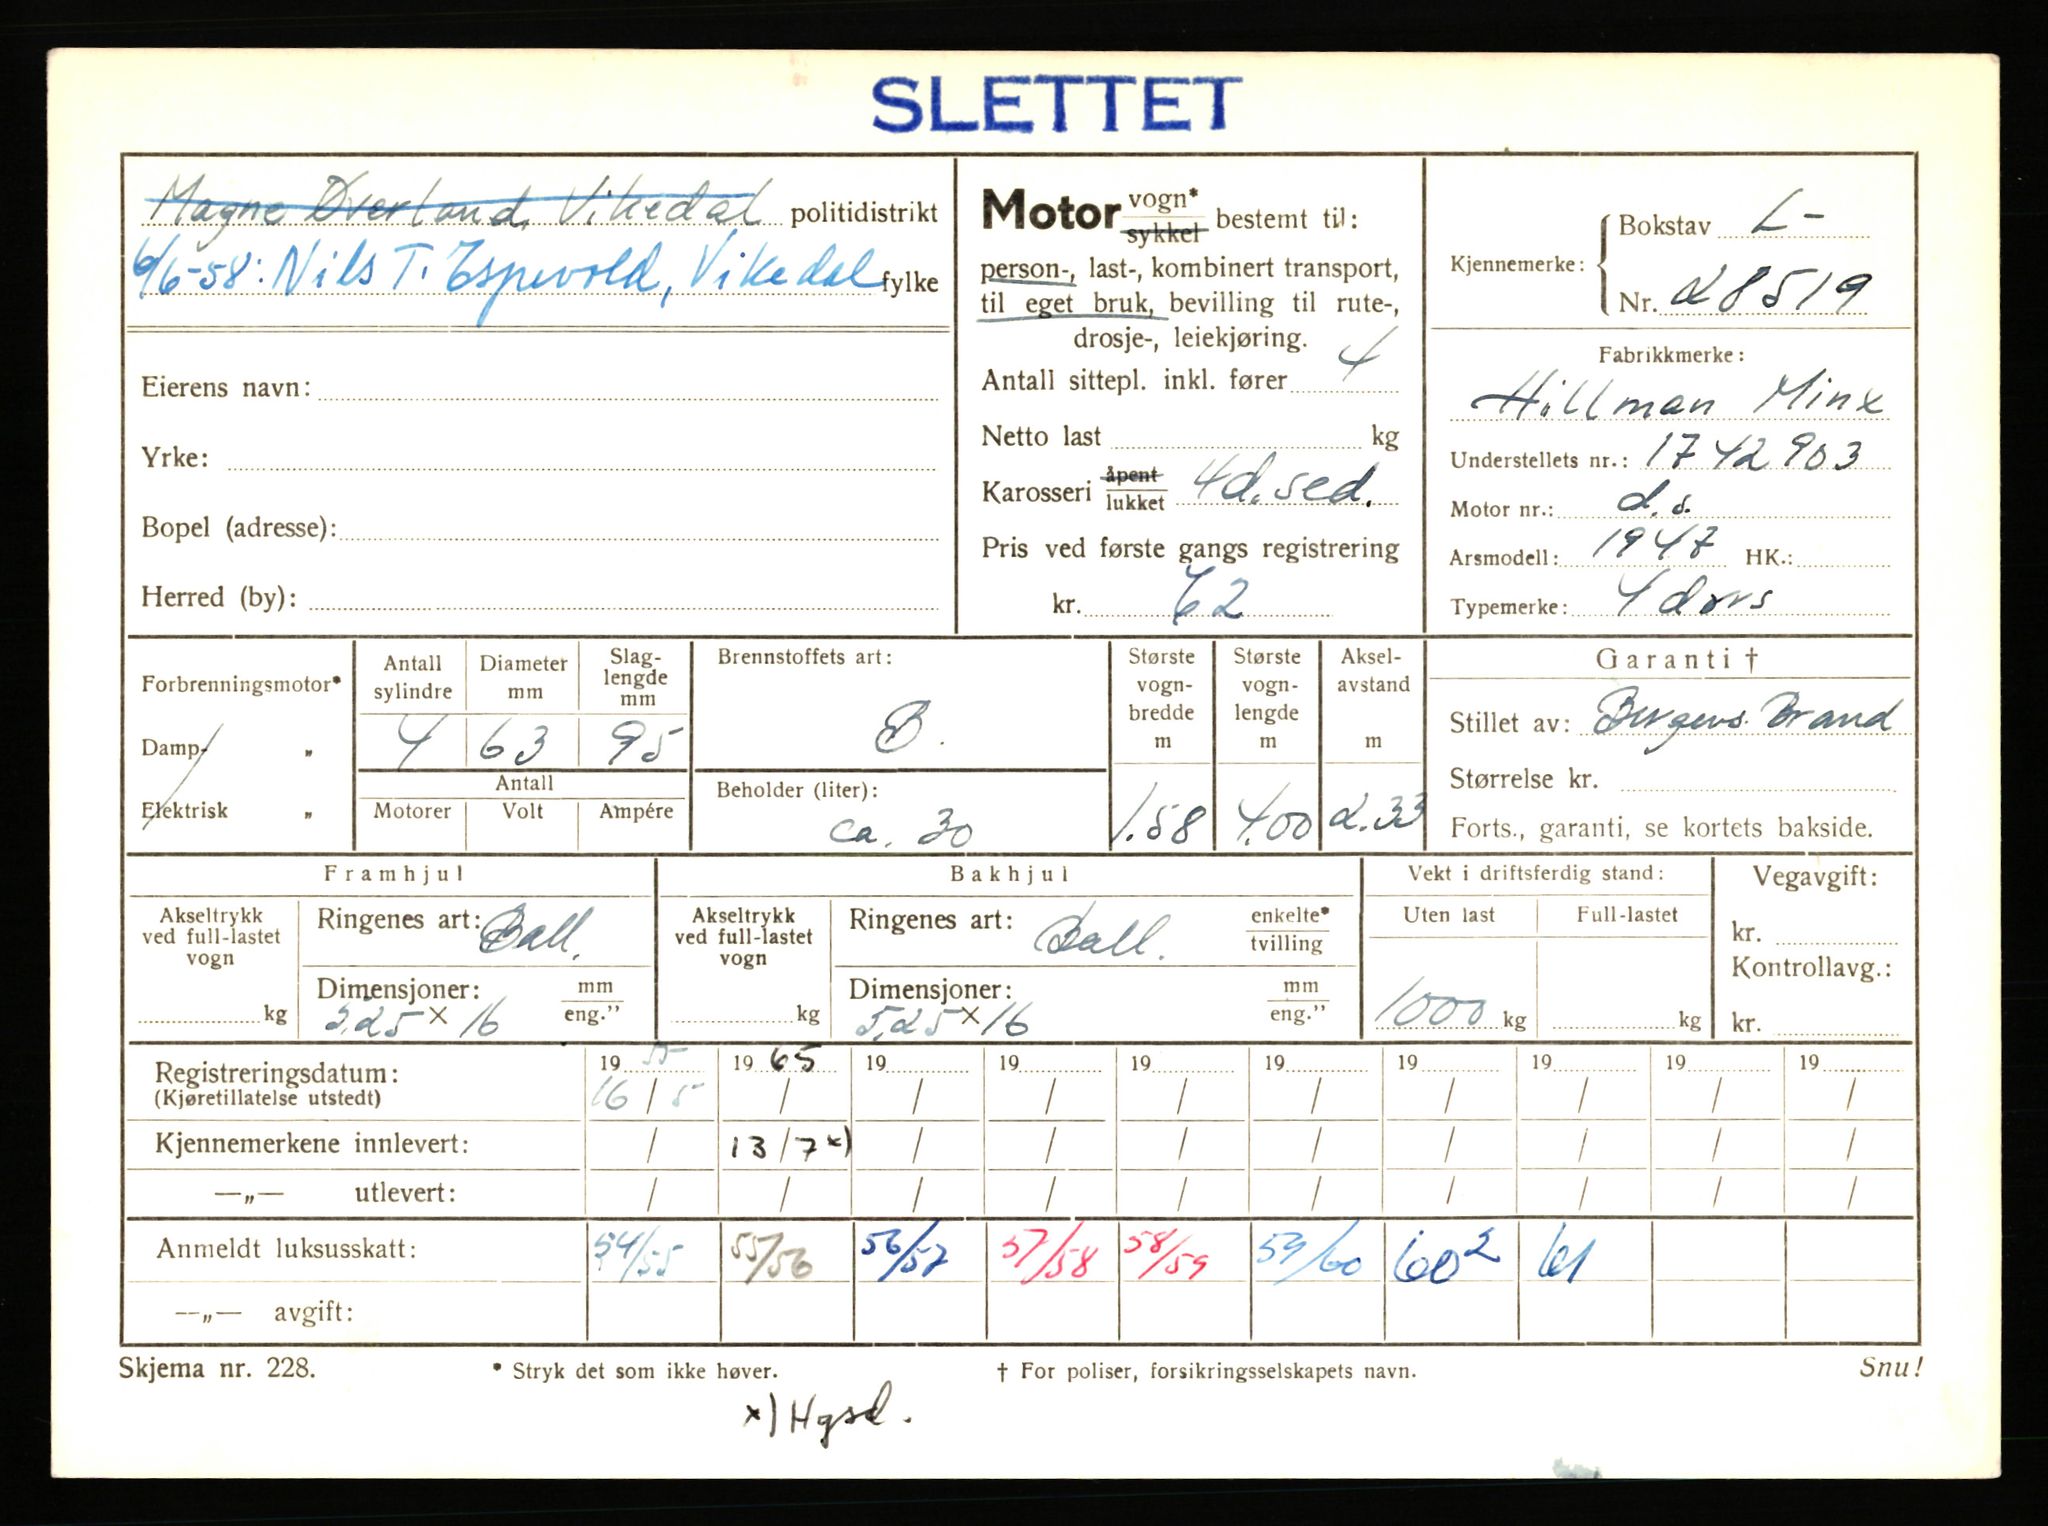 SLETTET
Magne Øverland, Vikedal politidistrikt
6/6-58: Nils T. Espevold, Vikedal fylke
Eierens navn:
Yrke:
Bopel (adresse):
Herred (by):
Motor vogn* sykkel bestemt til:
person-, last-, kombinert transport,
til eget bruk, bevilling til rute-,
drosje-, leiekjøring.
Antall sittepl. inkl. fører 4
Netto last kg
Karosseri åpent lukket 4d. sed.
Pris ved første gangs registrering
kr. 62
Kjennemerke: Bokstav L-
Nr. 28519
Fabrikkmerke:
Hillman Minx
Understellets nr.: 1742903
Motor nr.: d.s.
Arsmodell: 1947 HK.:
Typemerke: 4 dørs
Forbrenningsmotor*
Damp- „
Elektrisk „
Antall sylindre 4
Diameter mm 63
Slaglengde mm 95
Antall
Motorer Volt Ampére
Brennstoffets art:
B.
Beholder (liter):
ca. 30
Største vogn-bredde m 1.58
Største vogn-lengde m 4.00
Aksel-avstand m 2.33
Garanti †
Stillet av: Bergens Brand
Størrelse kr.
Forts., garanti, se kortets bakside.
Framhjul
Akseltrykk ved full-lastet vogn
kg
Ringenes art: Ball.
Dimensjoner: mm eng.”
5,25 x 16
Bakhjul
Akseltrykk ved full-lastet vogn
kg
Ringenes art: Ball. enkelte* tvilling
Dimensjoner: mm eng.”
5,25 x 16
Vekt i driftsferdig stand:
Uten last Full-lastet
1000 kg kg
Vegavgift:
kr.
Kontrollavg.:
kr.
Registreringsdatum: 19 55 19 65 19 19 19 19 19 19 19 19
(Kjøretillatelse utstedt) 16 / 5 / / / / / / / / /
Kjennemerkene innlevert: / 13 / 7 x) / / / / / / / /
—„— utlevert: / / / / / / / / / /
Anmeldt luksusskatt: 54/55 55/56 56/57 57/58 58/59 59/60 60² 61
—„— avgift:
Skjema nr. 228. * Stryk det som ikke høver. † For poliser, forsikringsselskapets navn. Snu!
x) Hgsd.